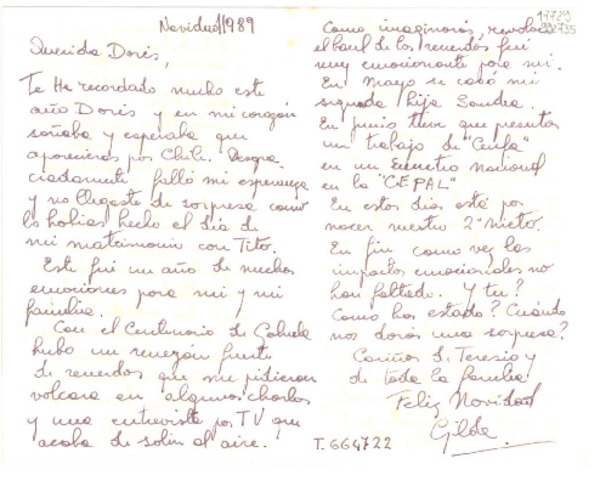 Navidad/1989
Querida Doris,
Te he recordado mucho este
año Doris y en mi corazón
soñaba y esperaba que
aparecieras por Chile. Desgra-
ciadamente falló mi esperanza
y no llegaste de sorpresa como
lo habías hecho el día de
mi matrimonio con Tito.
Este fué un año de muchas
emociones para mi y mi
familia.
Con el Centenario de Gabriela
hubo un remezón fuerte
de recuerdos que me pidieron
volcara en algunas charlas
y una entrevista por TV que
acaba de salir al aire.
Como imaginarás, revolver
el baul de los recuerdos fué
muy emocionante para mi.
En Mayo se casó mi
segunda hija Sandra.
En junio tuve que presentar
un trabajo de "Cenfa"
en un Encuentro Nacional
en la "CEPAL"
En estos días está por
nacer nuestro 2º nieto.
En fin como ves los
impactos emocionales no
han faltado. Y tu?
Como has estado? Cuándo
nos darás una sorpresa?
Cariños de Teresa y
de toda la familia
Feliz Navidad
Gilda
T. 664722